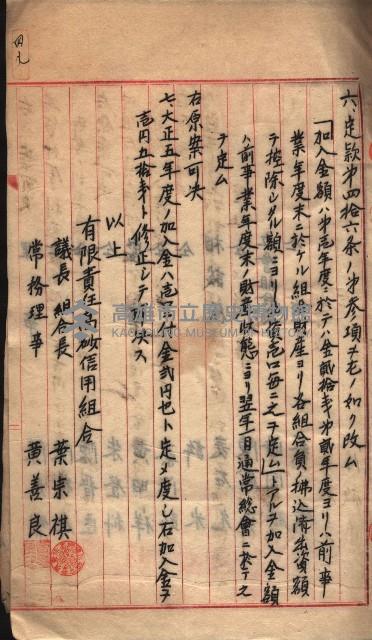 六、定款第四拾六条ノ第参項ヲ左ノ如ク改ム
「加入金額ハ第壱年度ニ於テハ金貳拾銭第貳年度ヨリハ前事
業年度末ニ於ケル組合財産ヨリ各組合員ノ拂込済出資額
ヲ控除シタル額ニヨリ出資口毎ニ之ヲ定ム」トアルヲ加入金額
ハ前事業年度末ノ財産状態ニヨリ翌年目通常総会ニ於テ之
ヲ定ム
右原案可決
七、大正五年度ノ加入金ハ壱口金貳円也ト定メ度シ右加入金ヲ
壱円五拾銭ト修正シテ可決ス
以上
有限責任 砂信用組合
議長 組合長 葉宗祺
常務理事 黄善良
高雄市立歷史博物館
KAOHSIUNG MUSEUM OF HISTORY